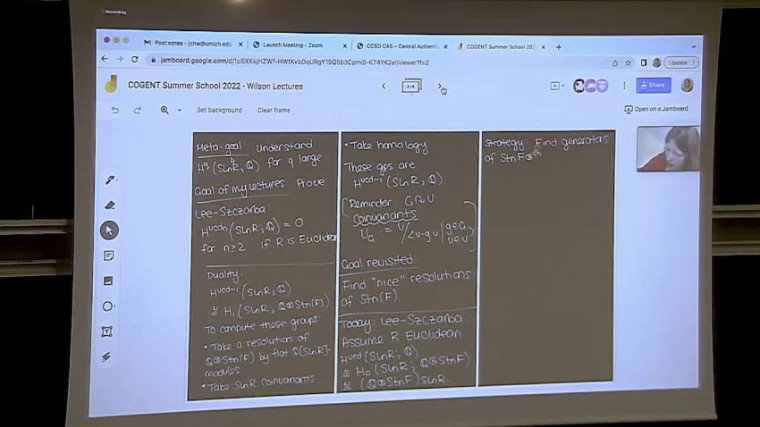 Recording
Post notes - jchw@umich.edu
Launch Meeting - Zoom
CCSD CAS – Central Authentic
COGENT Summer School 2022
jamboard.google.com
Update
COGENT Summer School 2022 - Wilson Lectures
Share
Set background
Clear frame
Open on a Jamboard
Meta-goal Understand
(SLnR, Q) for q large
Goal of my lectures Prove
Lee-Szczarba:
H^vcdn (SLnR; Q) = 0
for n≥2 if R is Euclidean
Duality:
H^vcd-i (SLnR; Q)
≅ Hi (SLnR, Q⊗Stn(F))
To compute these groups:
• Take a resolution of
Q⊗Stn(F) by flat Q[SLnR]-
modules
• Take SLnR coinvariants
• Take homology
These gps are
H^vcd-i (SLnR, Q)
(Reminder: G↷V
Coinvariants
V_G := V/<v-g·v | g∈G, v∈V>
Goal revisited:
Find "nice" resolutions
of Stn(F).
Today: Lee-Szczarba
Assume R Euclidean
H^vcd (SLnR; Q)
≅ H0 (SLnR; Q⊗StnF)
≅ (Q⊗StnF)SLnR
Strategy Find generators
of StnF